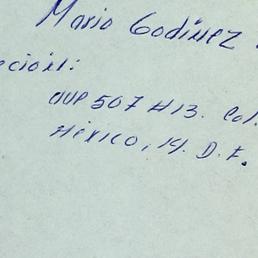 Mario Godinez
ción:
507 H13. Col.
México, 14. D. F.